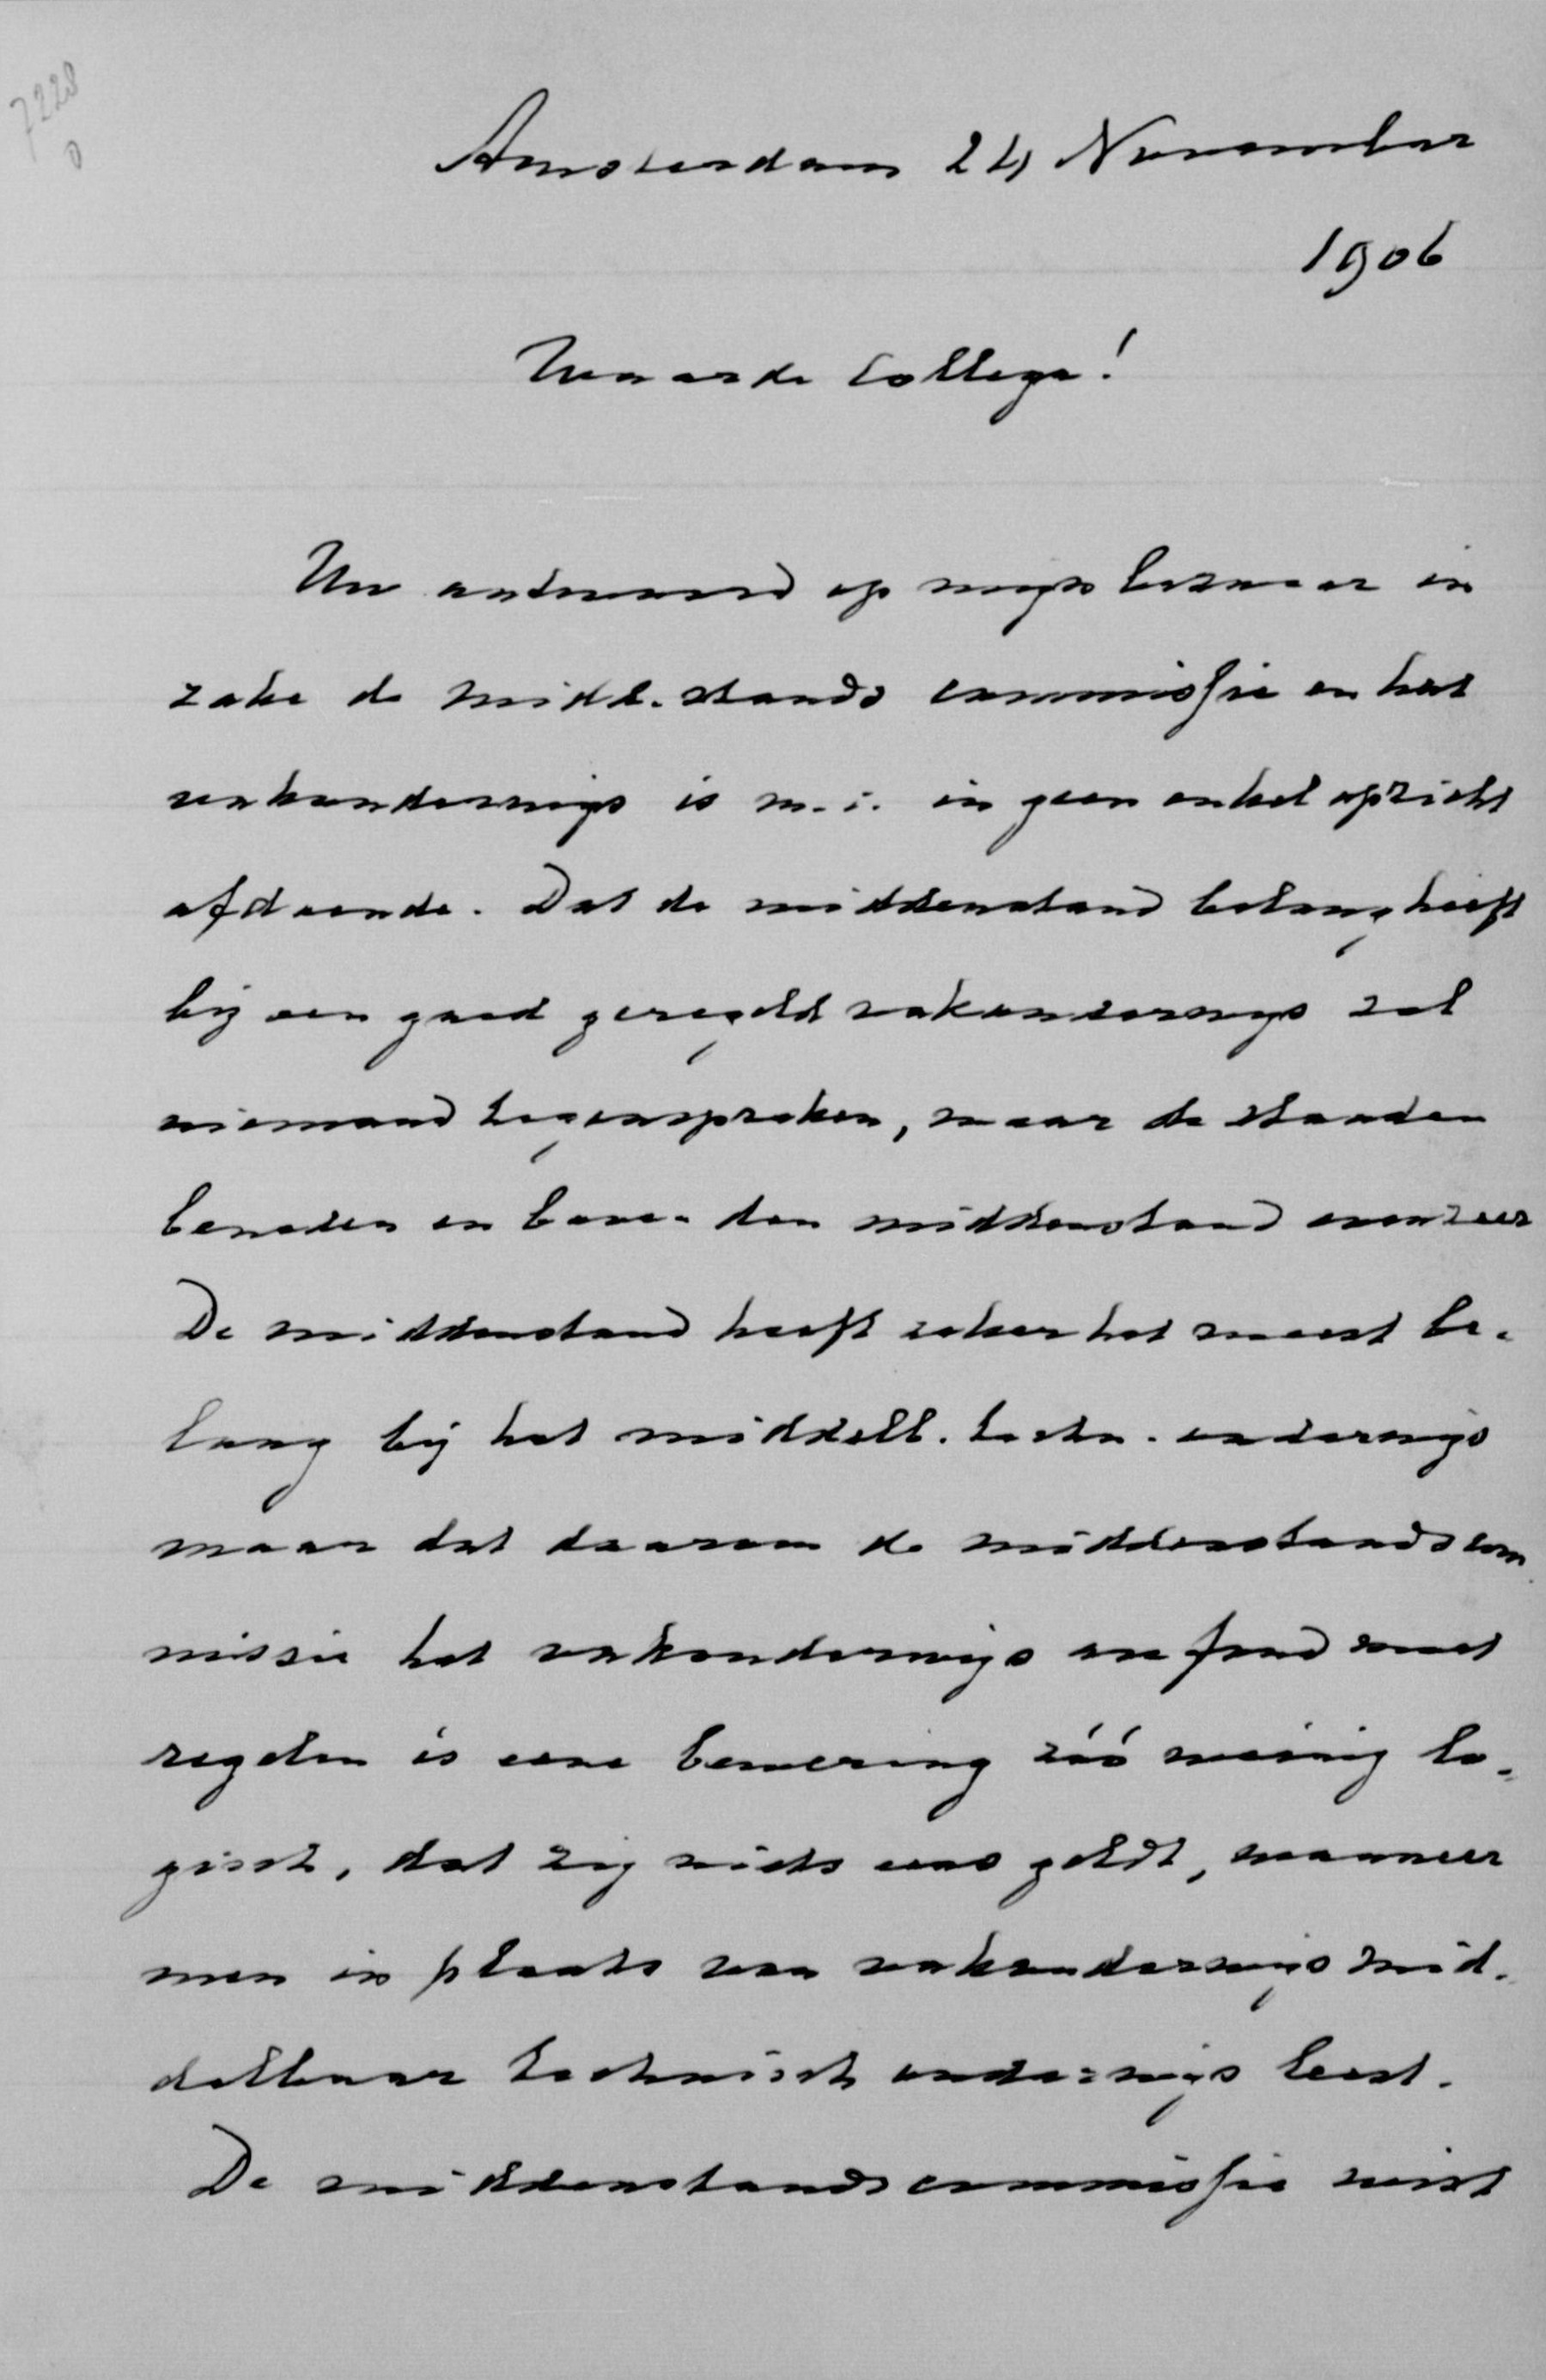 7228
0
Amsterdam 24 November
1906
Waarde Collega!
Uw antwoord op mijn bezwaar in
zake de midd. stands commissie en het
vakonderwijs is m.i. in geen enkel opzicht
afdoende. Dat de middenstand belang heeft
bij een goed geregeld vakonderwijs zal
niemand tegenspreken, maar de standen
beneden en boven den middenstand evenzeer
De middenstand heeft zeker het meest be-
lang bij het middelb. techn. onderwijs
maar dat daarom de middenstandscom
missie het vakonderwijs au fond moet
regelen is eene bewering zóó weinig lo-
gisch, dat zij niets eens geldt, wanneer
men in plaats van vakonderwijs mid-
delbaar technisch onderwijs leest.
De middenstandscommissie